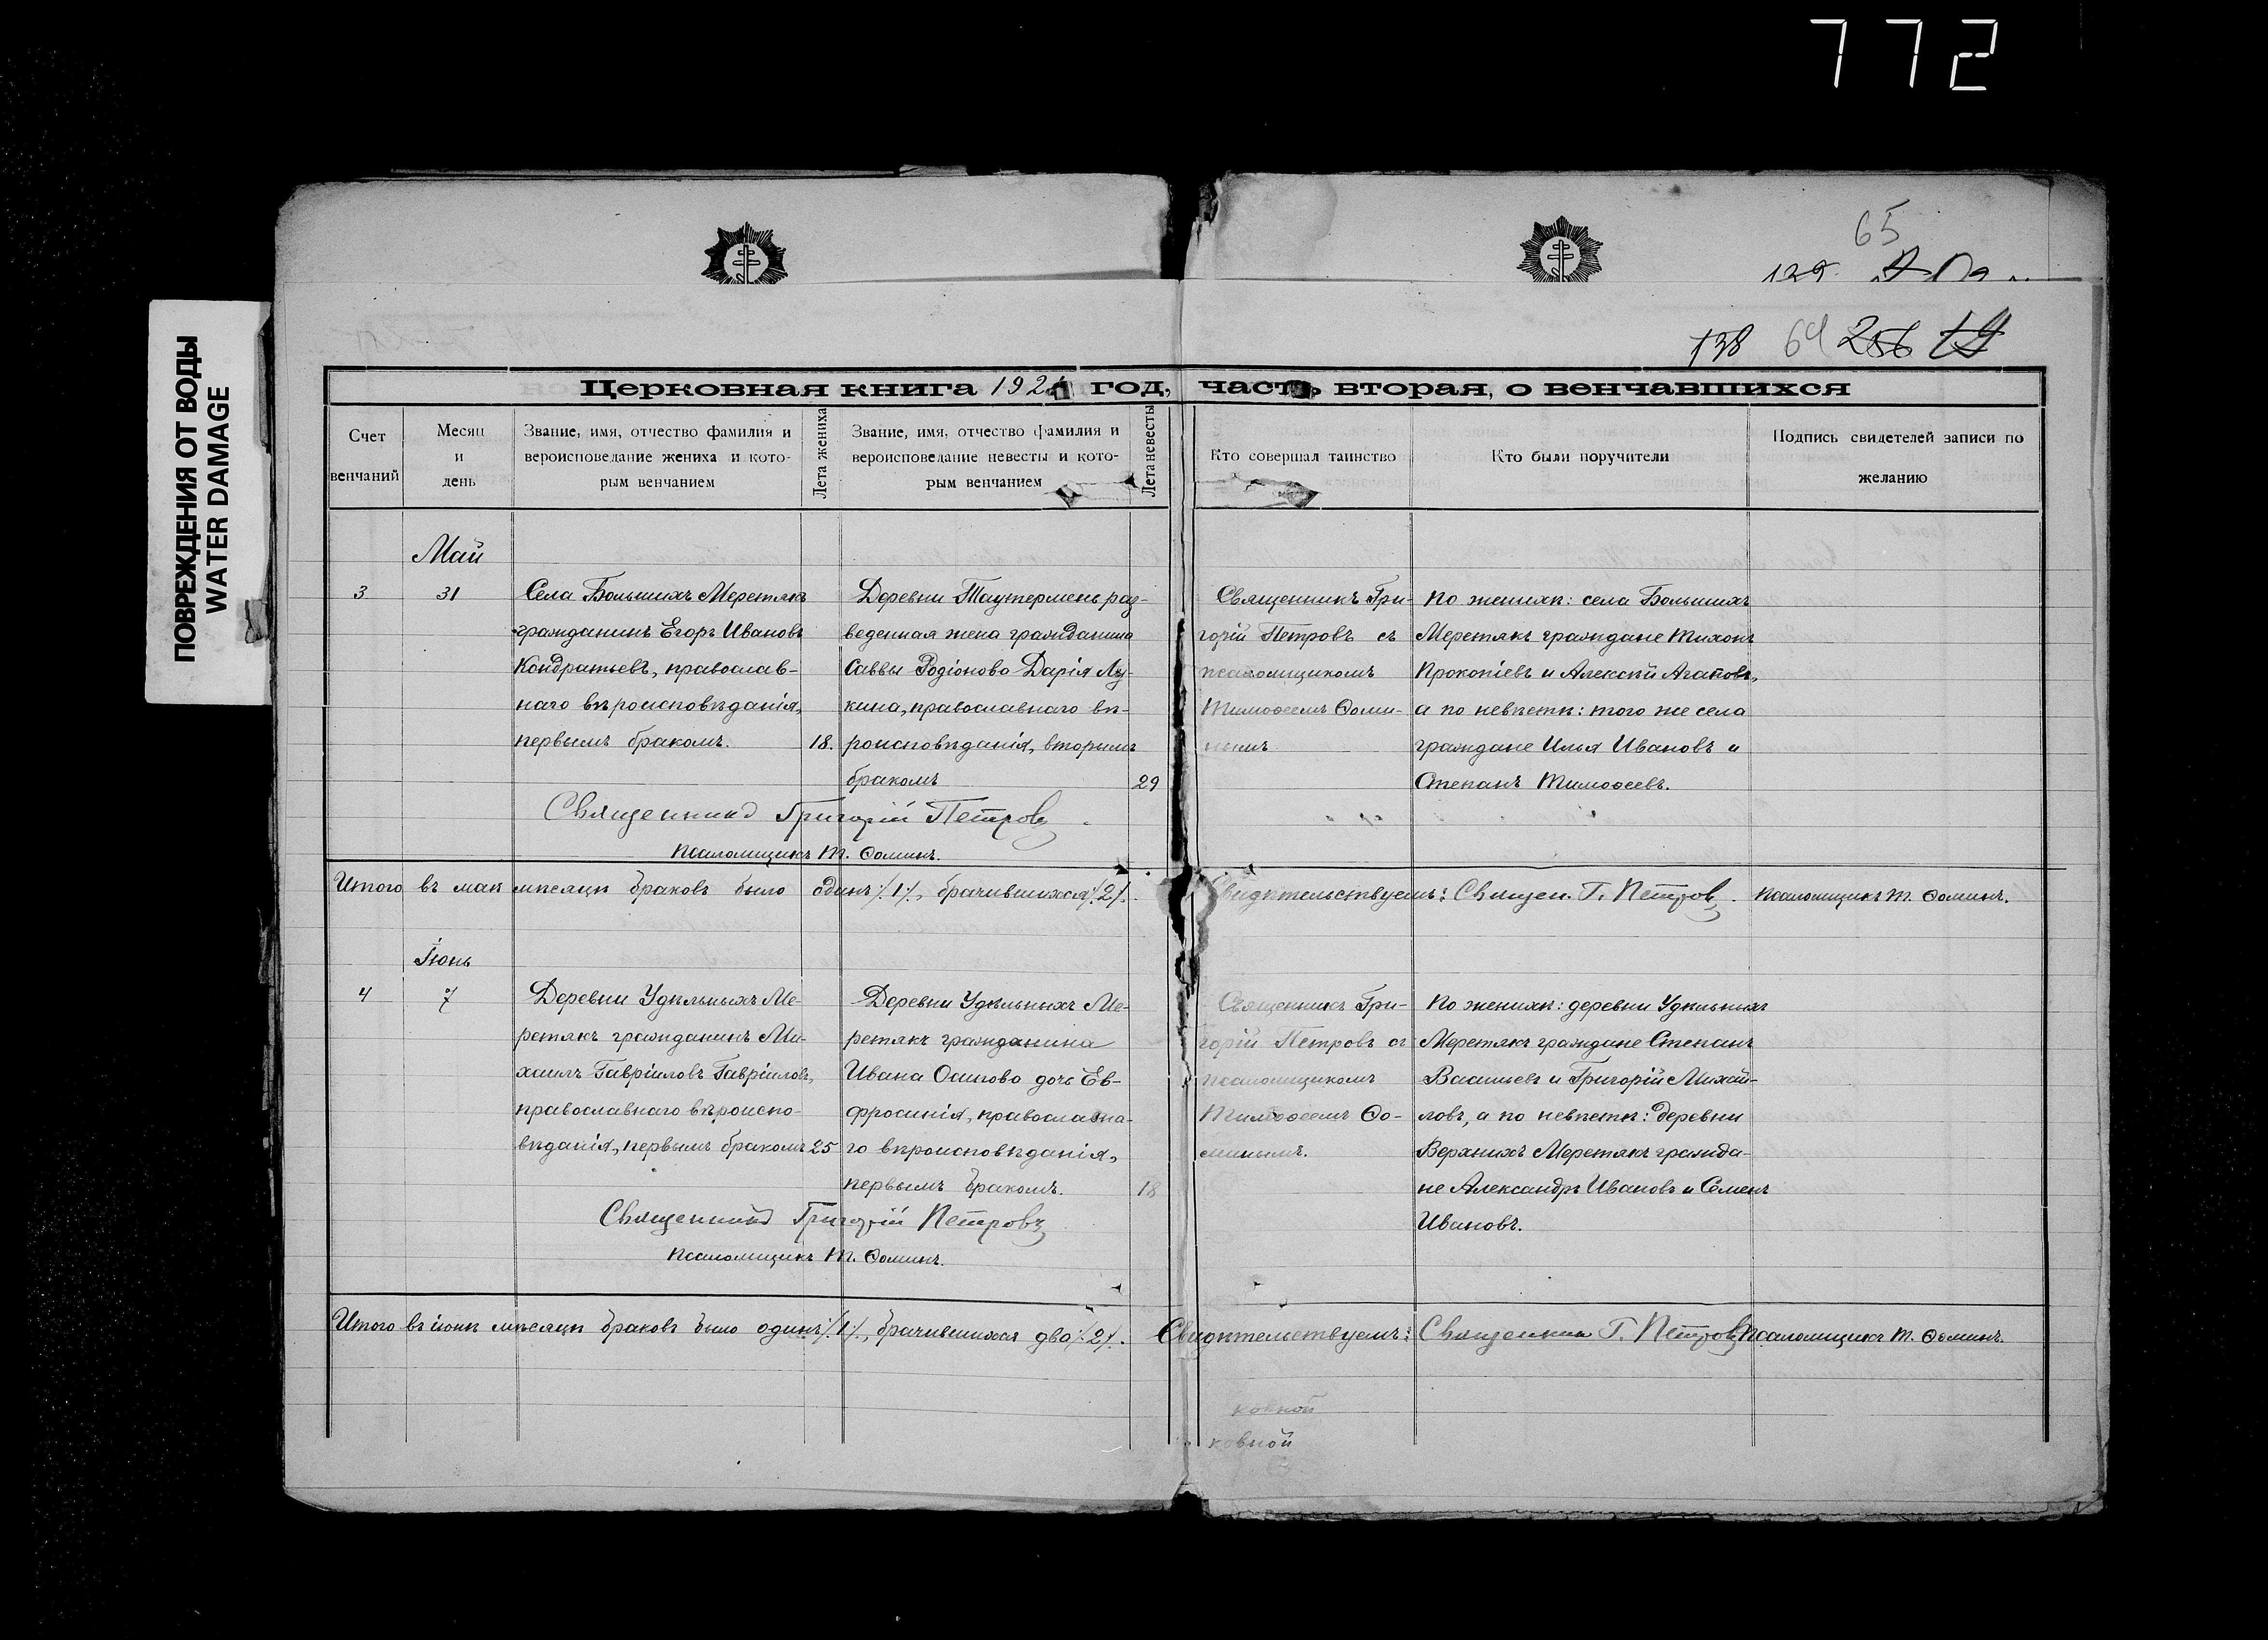 772
ПОВРЕЖДЕНИЯ ОТ ВОДЫ
WATER DAMAGE
65
129.
138 64 256 19
Церковная книга 192 год, часть вторая, о венчавшихся
Счет
венчаний
Месяц
и
день
Звание, имя, отчество фамилия и
вероисповедание жениха и кото-
рым венчанием
Лета жениха
Звание, имя, отчество фамилия и
вероисповедание невесты и кото-
рым венчанием
Лета невесты
Кто совершал таинство
Кто были поручители
Подпись свидетелей записи по
желанию
Май
3
31
Села Большихъ Меретякъ
гражданинъ Егоръ Ивановъ
Кондратьевъ, православ-
наго вѣроисповѣданія,
первымъ бракомъ.
18.
Деревни Таутермень раз-
веденная жена гражданина
Саввы Родіонова Дарія Лу-
кина, православнаго вѣ-
роисповѣданія, вторымъ
бракомъ
29
Священникъ Гри-
горій Петровъ съ
псаломщикомъ
Тимоѳеемъ Ѳоми-
нымъ
По женихѣ: села Большихъ
Меретякъ граждане Тихонъ
Прокопіевъ и Алексѣй Агаповъ,
а по невѣстѣ: того же села
граждане Илья Ивановъ и
Степанъ Тимоѳеевъ.
Священникъ Григорій Петровъ
Псаломщикъ Т. Ѳоминъ.
Итого въ маѣ мѣсяцѣ браковъ было одинъ /.1/., брачившихся /.2/. Свидѣтельствуемъ: Священ. Г. Петровъ. Псаломщикъ Т. Ѳоминъ.
Іюнь
4
7
Деревни Удѣльныхъ Ме-
ретякъ гражданинъ Ми-
хаилъ Гавріиловъ Гавріиловъ,
православнаго вѣроиспо-
вѣданія, первымъ бракомъ
25
Деревни Удѣльныхъ Ме-
ретякъ гражданина
Ивана Осипова дочь Ев-
фросинія, православна-
го вѣроисповѣданія,
первымъ бракомъ.
18
Священникъ Гри-
горій Петровъ съ
псаломщикомъ
Тимоѳеемъ Ѳо-
минымъ.
По женихѣ: деревни Удѣльныхъ
Меретякъ граждане Степанъ
Васильевъ и Григорій Михай-
ловъ, а по невѣстѣ: деревни
Верхнихъ Меретякъ гражда-
не Александръ Ивановъ и Семенъ
Ивановъ.
Священникъ Григорій Петровъ
Псаломщикъ Т. Ѳоминъ.
Итого въ іюнѣ мѣсяцѣ браковъ было одинъ /.1/., брачившихся два /.2/. Свидѣтельствуемъ: Священникъ Г. Петровъ Псаломщикъ Т. Ѳоминъ.
ковной
ковной